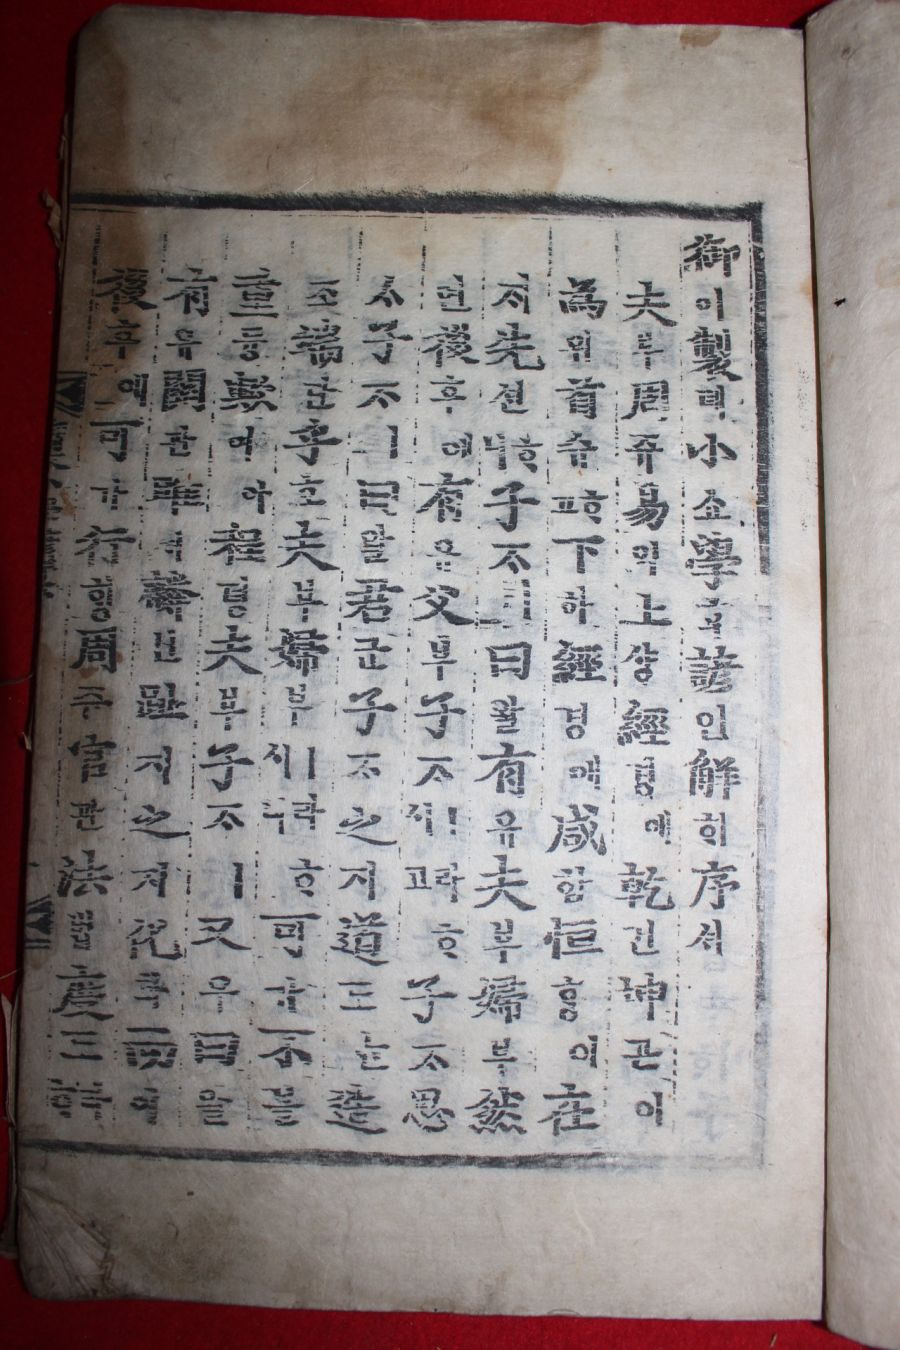 御어製졔小쇼學ᄒᆞᆨ諺언解ᄒᆡ序셔
夫부周쥬易역上샹經경에乾건坤곤이
爲위首슈ᄒᆞ고下하經경에咸함恒ᄒᆞᆼ이在
ᄌᆡ先션ᄒᆞ니子ᄌᆞㅣ曰왈有유夫부婦부然
연後후에有유父부子ᄌᆞㅣ라ᄒᆞ고子ᄌᆞ思
ᄉᆞ子ᄌᆞㅣ曰왈君군子ᄌᆞ之지道도는造
조端단乎호夫부婦부ㅣ라ᄒᆞ니可가不블
重듕歟여아程뎡夫부子ᄌᆞㅣ又우曰왈
有유關관雎져麟린趾지之지
後후에可가行ᄒᆡᆼ周쥬官관法법度도ㅣ